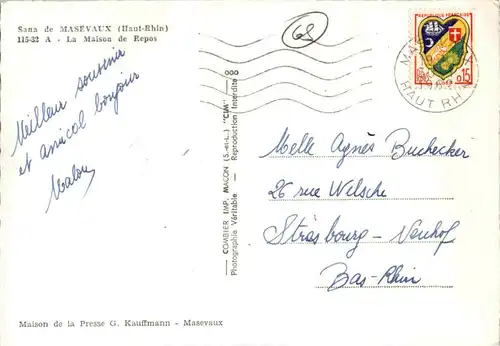 Sana de MASEVAUX (Haut-Rhin)
115-32 A - La Maison de Repos
Meilleur souvenir
et amical bonjour
68
COMBIER IMP. MACON (S.-et-L.) "CIM"
Photographie Véritable - Reproduction Interdite
REPUBLIQUE FRANCAISE
0,15
HAUT RHIN
Melle Agnès Buchecker
26 rue Welsche
Strasbourg - Neuhof
Bas-Rhin
Maison de la Presse G. Kauffmann - Masevaux